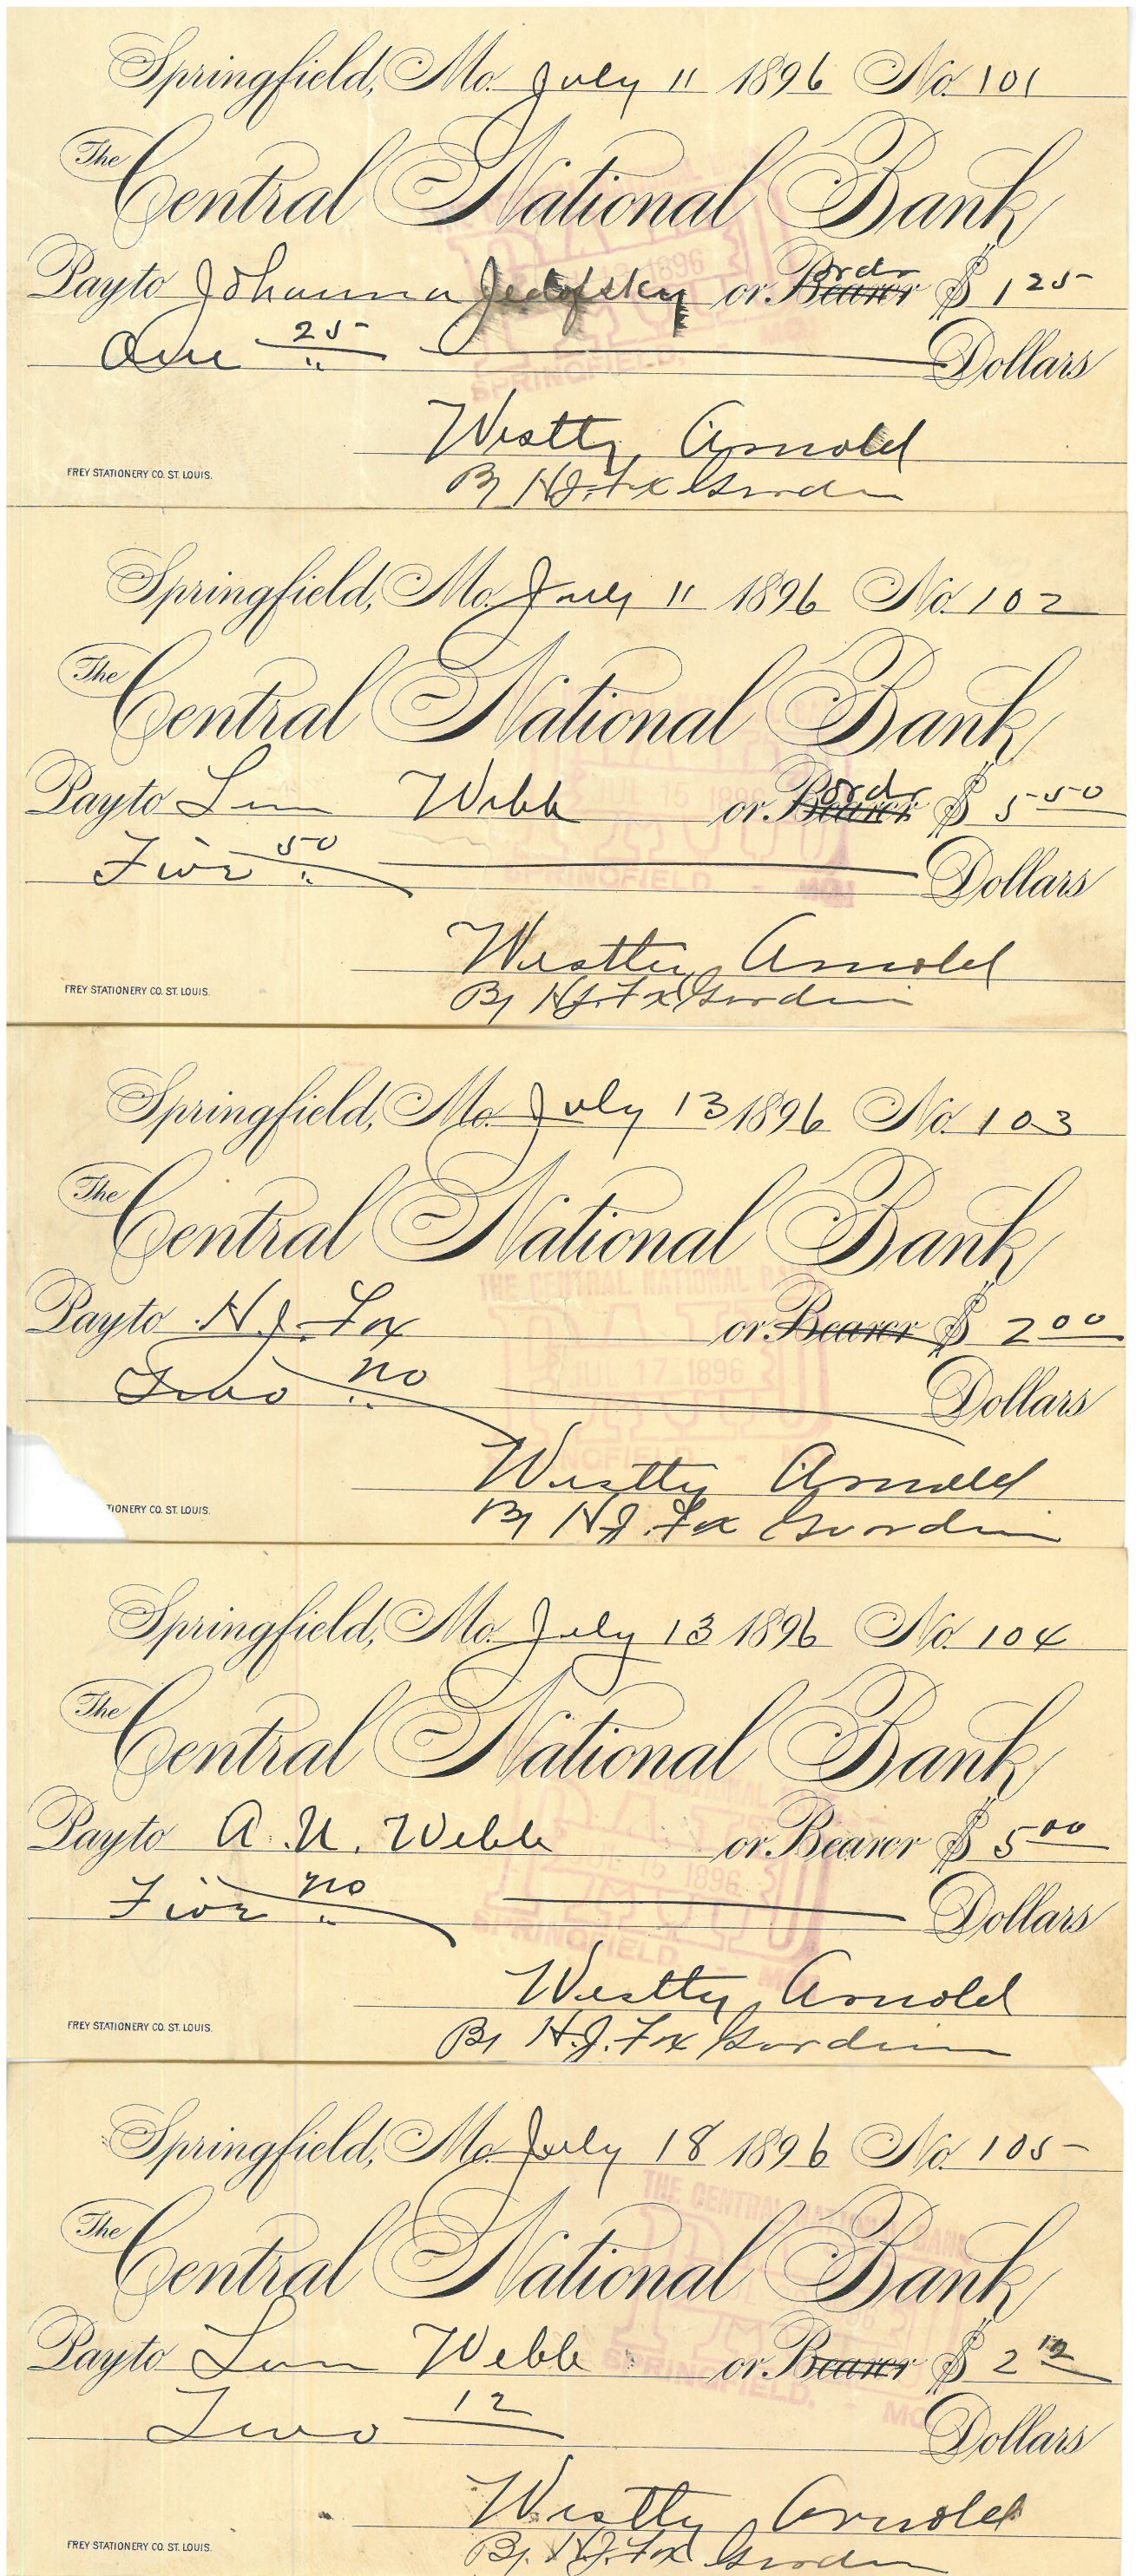 Springfield, Mo. July 11 1896 No. 101
The Central National Bank
Pay to Johanna Jedofsky or Bearer ordr $ 1 25
One 25 Dollars
Westty Arnold
By H.J. Fox Gurdin
FREY STATIONERY CO. ST. LOUIS.
Springfield, Mo. July 11 1896 No. 102
The Central National Bank
Pay to Webb or Bearer ordr $ 5 50
Five 50 Dollars
SPRINGFIELD - MO.
Westty Arnold
By H.J. Fox Gurdin
FREY STATIONERY CO. ST. LOUIS.
Springfield, Mo. July 13 1896 No. 103
The Central National Bank
THE CENTRAL NATIONAL BANK
Pay to H.J. Fox or Bearer $ 2 00
17 1896
Two no Dollars
Westty Arnold
By H.J. Fox Gurdin
TIONERY CO. ST. LOUIS.
Springfield, Mo. July 13 1896 No. 104
The Central National Bank
Pay to A. U. Webb or Bearer $ 5 00
15 1896
Five no Dollars
SPRINGFIELD
Westty Arnold
By H.J. Fox Gurdin
FREY STATIONERY CO. ST. LOUIS.
Springfield, Mo. July 18 1896 No. 105
THE CENTRAL NATIONAL BANK
The Central National Bank
Pay to Webb or Bearer $ 2 12
SPRINGFIELD. - MO.
Two 12 Dollars
Westty Arnold
By H.J. Fox Gurdin
FREY STATIONERY CO. ST. LOUIS.